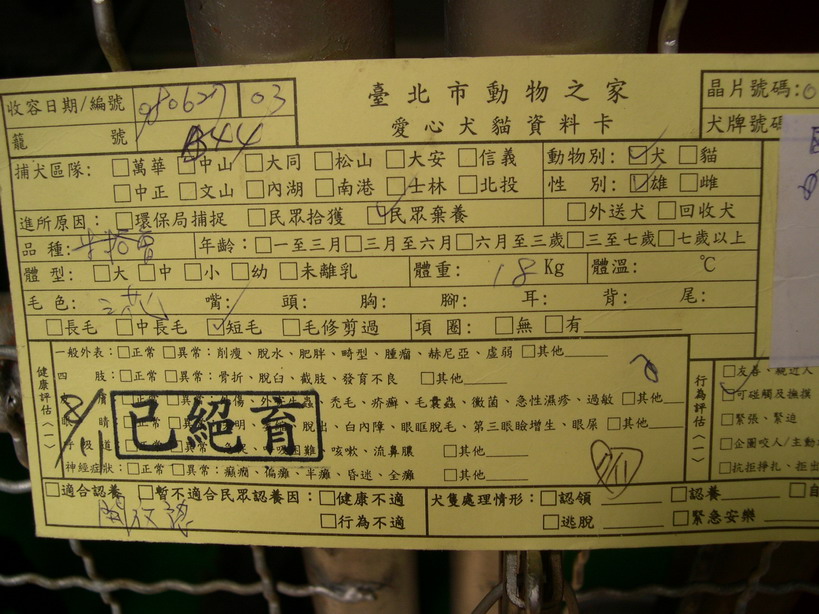 臺北市動物之家
愛心犬貓資料卡
收容日期/編號 980627 03
籠號 B44
晶片號碼:0
犬牌號碼
捕犬區隊: □萬華 □中山 □大同 □松山 □大安 □信義
□中正 □文山 □內湖 □南港 □士林 □北投
動物別: ☑犬 □貓
性別: ☑雄 □雌
進所原因: □環保局捕捉 □民眾拾獲 ☑民眾棄養 □外送犬 □回收犬
品種: 年齡: □一至三月 □三月至六月 □六月至三歲 □三至七歲 □七歲以上
體型: □大 □中 □小 □幼 □未離乳 體重: 18 Kg 體溫: ℃
毛色: 嘴: 頭: 胸: 腳: 耳: 背: 尾:
□長毛 □中長毛 ☑短毛 □毛修剪過 項圈: □無 □有
健康評估(一)
一般外表: □正常 □異常: 削瘦、脫水、肥胖、畸型、腫瘤、赫尼亞、虛弱 □其他
四肢: □正常 □異常: 骨折、脫臼、截肢、發育不良 □其他
禿毛、疥癬、毛囊蟲、黴菌、急性濕疹、過敏 □其他
脫出、白內障、眼眶脫毛、第三眼瞼增生、眼屎 □其他
咳嗽、流鼻膿 □其他
神經症狀: □正常 □異常: 癲癇、偏癱、半癱、昏迷、全癱 □其他
已絕育
8/1
7/11
行為評估(一)
□友善、親近人
☑可碰觸及撫摸
□緊張、緊迫
□企圖咬人/主動
□抗拒掙扎、拒
□適合認養 □暫不適合民眾認養因: □健康不適
□行為不適
開放認
犬隻處理情形: □認領 □認養
□逃脫 □緊急安樂